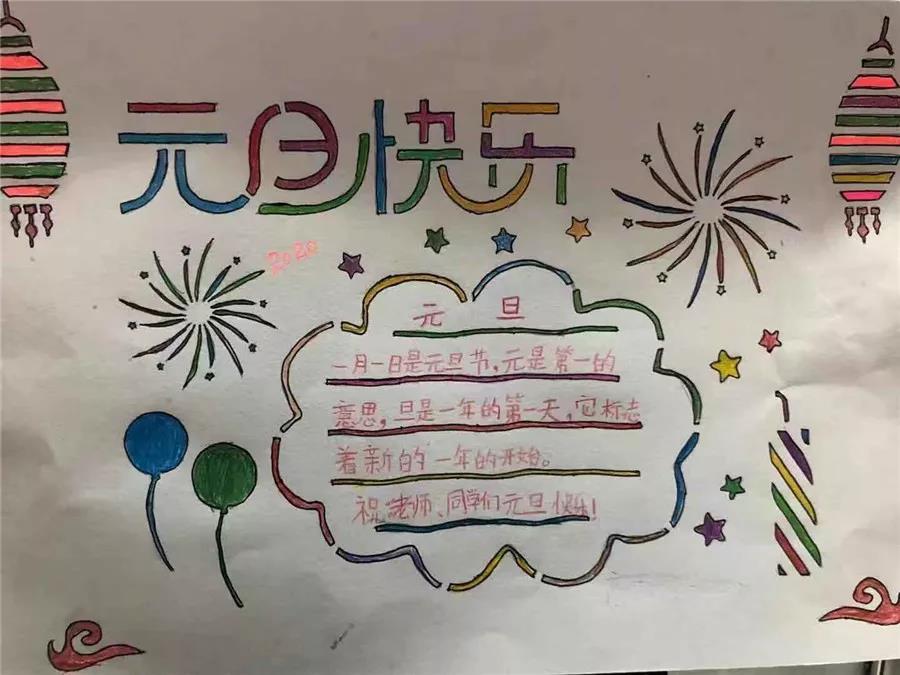 元旦快乐
2020
元 旦
一月一日是元旦节,元是第一的
意思,旦是一年的第一天,它标志
着新的一年的开始。
祝老师、同学们元旦快乐!